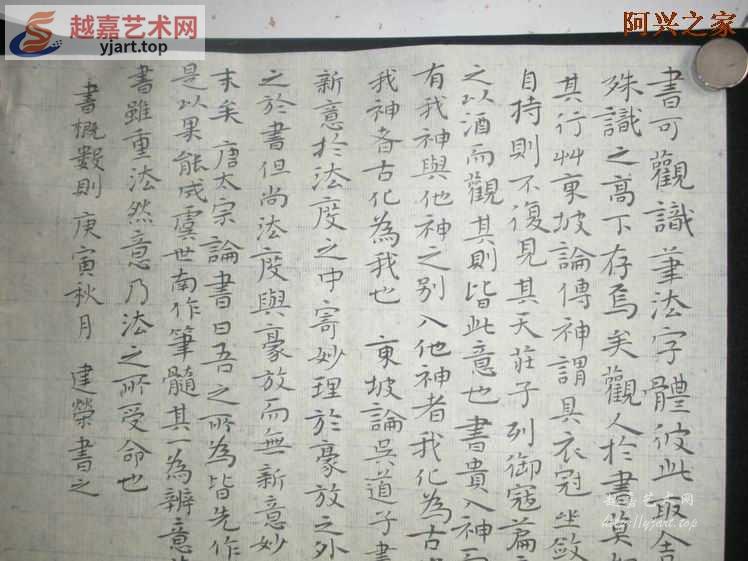 越嘉艺术网
yjart.top
阿兴之家
書可觀識筆法字體彼此取舍
殊識之高下存焉矣觀人於書莫如
其行艸東坡論傳神謂具衣冠坐斂
自持則不復見其天莊子列御寇篇
之以酒而觀其則皆此意也 書貴入神
有我神與他神之別入他神者我化為古
我神者古化為我也 東坡論吳道子書
新意於法度之中寄妙理於豪放之外
之於書但尚法度與豪放而無新意妙
末矣 唐太宗論書曰吾之所為皆先作
是以果能成虞世南作筆髓其一為辨意
書雖重法然意乃法之所受命也
書概數則庚寅秋月 建榮書之
越嘉艺术网
http://yjart.top